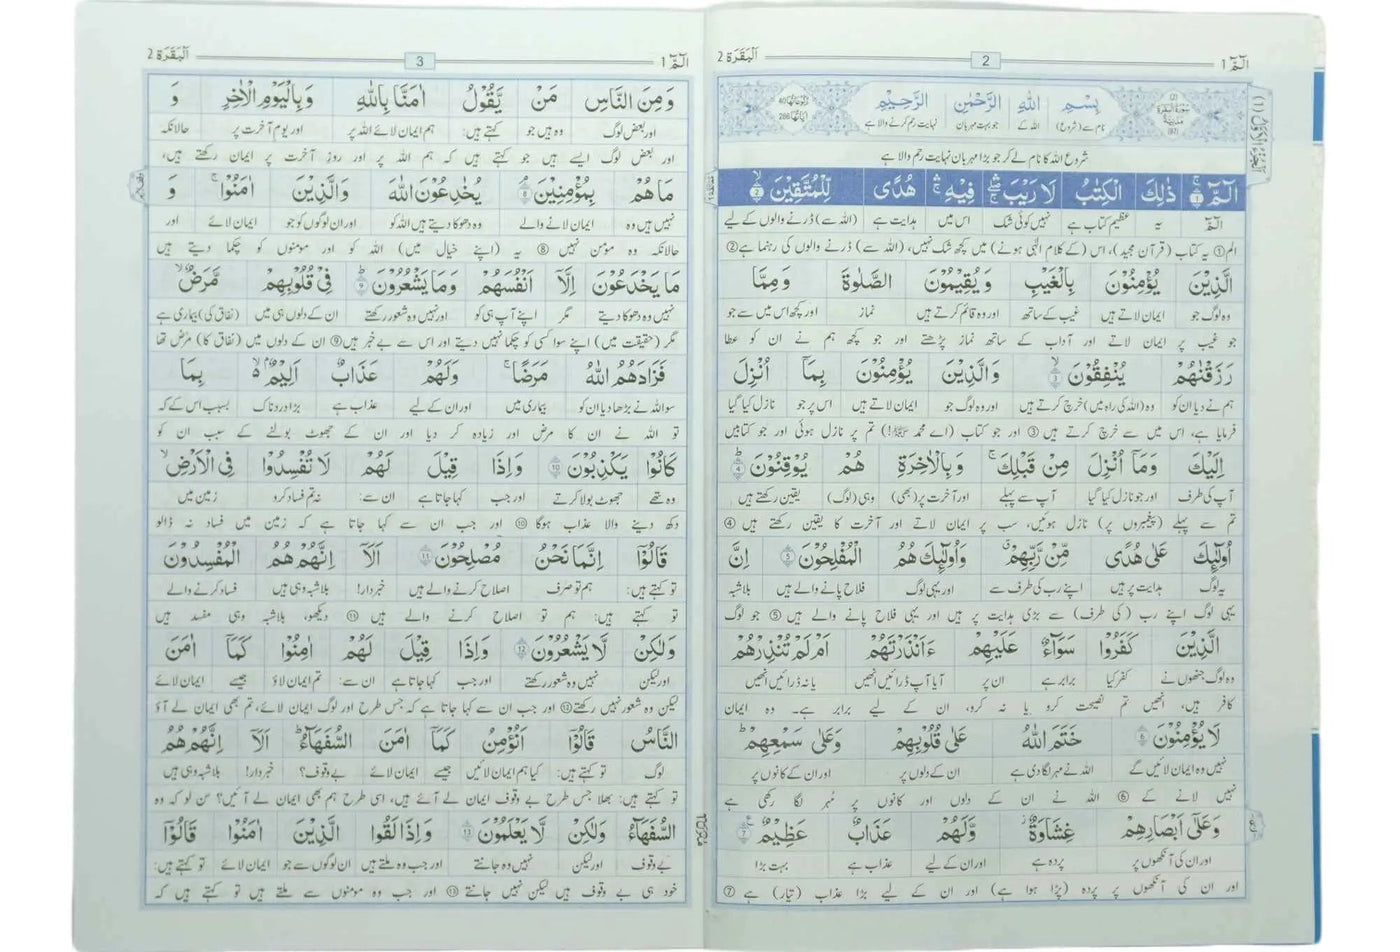 الٓمّٓ 1
2
اَلْبَقَرَة 2
بِسْمِ اللّٰهِ الرَّحْمٰنِ الرَّحِيْمِ
نام سے (شروع) اللہ کے جو بہت مہربان نہایت رحم کرنے والا ہے
شروع اللہ کا نام لے کر جو بڑا مہربان نہایت رحم والا ہے
الٓمّٓ ۚ 1 ذٰلِكَ الْكِتٰبُ لَا رَيْبَ ۛ فِيْهِ ۛ هُدًى لِّلْمُتَّقِيْنَ ۙ 2
الٓمّٓ یہ عظیم کتاب ہے نہیں کوئی شک اس میں ہدایت ہے (اللہ سے) ڈرنے والوں کے لیے
الم ① یہ کتاب (قرآن مجید)، اس (کے کلام الٰہی ہونے) میں کچھ شک نہیں، (اللہ سے) ڈرنے والوں کی رہنما ہے ②
الَّذِيْنَ يُؤْمِنُوْنَ بِالْغَيْبِ وَ يُقِيْمُوْنَ الصَّلٰوةَ وَ مِمَّا
وہ لوگ جو ایمان لاتے ہیں غیب کے ساتھ اور وہ قائم کرتے ہیں نماز اور کچھ اس میں سے جو
جو غیب پر ایمان لاتے اور آداب کے ساتھ نماز پڑھتے اور جو کچھ ہم نے ان کو عطا
رَزَقْنٰهُمْ يُنْفِقُوْنَ ۙ 3 وَ الَّذِيْنَ يُؤْمِنُوْنَ بِمَاۤ اُنْزِلَ
ہم نے دیا ان کو وہ (اللہ کی راہ میں) خرچ کرتے ہیں اور وہ لوگ جو ایمان لاتے ہیں اس پر جو نازل کیا گیا
فرمایا ہے، اس میں سے خرچ کرتے ہیں ③ اور جو کتاب (اے محمد ﷺ!) تم پر نازل ہوئی اور جو کتابیں
اِلَيْكَ وَ مَاۤ اُنْزِلَ مِنْ قَبْلِكَ ۚ وَ بِالْاٰخِرَةِ هُمْ يُوْقِنُوْنَ ؕ 4
آپ کی طرف اور جو نازل کیا گیا آپ سے پہلے اور آخرت پر (بھی) وہی (لوگ) یقین رکھتے ہیں
تم سے پہلے (پیغمبروں پر) نازل ہوئیں، سب پر ایمان لاتے اور آخرت کا یقین رکھتے ہیں ④
اُولٰٓئِكَ عَلٰى هُدًى مِّنْ رَّبِّهِمْ ۗ وَ اُولٰٓئِكَ هُمُ الْمُفْلِحُوْنَ 5 اِنَّ
یہ لوگ ہدایت پر ہیں اپنے رب کی طرف سے اور یہی لوگ فلاح پانے والے ہیں بلاشبہ
یہی لوگ اپنے رب (کی طرف) سے بڑی ہدایت پر ہیں اور یہی فلاح پانے والے ہیں ⑤ جو لوگ
الَّذِيْنَ كَفَرُوْا سَوَآءٌ عَلَيْهِمْ ءَاَنْذَرْتَهُمْ اَمْ لَمْ تُنْذِرْهُمْ
وہ لوگ جنھوں نے کفر کیا برابر ہے ان پر آیا آپ ڈرائیں انھیں یا نہ ڈرائیں انھیں
کافر ہیں، انھیں تم نصیحت کرو یا نہ کرو، ان کے لیے برابر ہے۔ وہ ایمان
لَا يُؤْمِنُوْنَ 6 خَتَمَ اللّٰهُ عَلٰى قُلُوْبِهِمْ وَ عَلٰى سَمْعِهِمْ ؕ
نہیں وہ ایمان لائیں گے اللہ نے مہر لگا دی ہے ان کے دلوں پر اور ان کے کانوں پر
نہیں لانے کے ⑥ اللہ نے ان کے دلوں اور کانوں پر مُہر لگا رکھی ہے
وَ عَلٰۤى اَبْصَارِهِمْ غِشَاوَةٌ ۫ وَّ لَهُمْ عَذَابٌ عَظِيْمٌ 7
اور ان کی آنکھوں پر پردہ ہے اور ان کے لیے عذاب ہے بہت بڑا
اور ان کی آنکھوں پر پردہ (پڑا ہوا ہے) اور ان کے لیے بڑا عذاب (تیار) ہے ⑦
الٓمّٓ 1
3
اَلْبَقَرَة 2
وَ مِنَ النَّاسِ مَنْ يَّقُوْلُ اٰمَنَّا بِاللّٰهِ وَ بِالْيَوْمِ الْاٰخِرِ وَ
اور بعض لوگ وہ ہیں جو کہتے ہیں: ہم ایمان لائے اللہ پر اور یوم آخرت پر حالانکہ
اور بعض لوگ ایسے ہیں جو کہتے ہیں کہ ہم اللہ پر اور روز آخرت پر ایمان رکھتے ہیں،
مَا هُمْ بِمُؤْمِنِيْنَ ۘ 8 يُخٰدِعُوْنَ اللّٰهَ وَ الَّذِيْنَ اٰمَنُوْا ۚ وَ
نہیں ہیں وہ ایمان لانے والے وہ دھوکا دیتے ہیں اللہ کو اور ان لوگوں کو جو ایمان لائے اور
حالانکہ وہ مومن نہیں ⑧ یہ (اپنے خیال میں) اللہ کو اور مومنوں کو چکما دیتے ہیں
مَا يَخْدَعُوْنَ اِلَّاۤ اَنْفُسَهُمْ وَ مَا يَشْعُرُوْنَ ؕ 9 فِيْ قُلُوْبِهِمْ مَّرَضٌ ۙ
نہیں وہ دھوکا دیتے مگر اپنے آپ ہی کو اور نہیں وہ شعور رکھتے ان کے دلوں ہی میں (نفاق کی) بیماری ہے
مگر (حقیقت میں) اپنے سوا کسی کو چکما نہیں دیتے اور اس سے بے خبر ہیں ⑨ ان کے دلوں میں (نفاق کا) مرض تھا
فَزَادَهُمُ اللّٰهُ مَرَضًا ۚ وَ لَهُمْ عَذَابٌ اَلِيْمٌۢ ۙ۬ بِمَا
سو اللہ نے بڑھا دیا ان کو بیماری میں اور ان کے لیے عذاب ہے بڑا دردناک بسبب اس کے کہ
تو اللہ نے ان کا مرض اور زیادہ کر دیا اور ان کے جھوٹ بولنے کے سبب ان کو
كَانُوْا يَكْذِبُوْنَ 10 وَ اِذَا قِيْلَ لَهُمْ لَا تُفْسِدُوْا فِي الْاَرْضِ ۙ
وہ تھے جھوٹ بولا کرتے اور جب کہا جاتا ہے ان سے: نہ تم فساد کرو زمین میں
دکھ دینے والا عذاب ہوگا ⑩ اور جب ان سے کہا جاتا ہے کہ زمین میں فساد نہ ڈالو
قَالُوْۤا اِنَّمَا نَحْنُ مُصْلِحُوْنَ 11 اَلَاۤ اِنَّهُمْ هُمُ الْمُفْسِدُوْنَ
تو کہتے ہیں: ہم تو صرف اصلاح کرنے والے ہیں خبردار! بلاشبہ وہی ہیں فساد کرنے والے
تو کہتے ہیں: ہم تو اصلاح کرنے والے ہیں ⑪ دیکھو، بلاشبہ وہی مفسد ہیں
وَ لٰكِنْ لَّا يَشْعُرُوْنَ 12 وَ اِذَا قِيْلَ لَهُمْ اٰمِنُوْا كَمَاۤ اٰمَنَ
اور لیکن نہیں وہ شعور رکھتے اور جب کہا جاتا ہے ان سے: تم ایمان لاؤ جیسے ایمان لائے
لیکن وہ شعور نہیں رکھتے ⑫ اور جب ان سے کہا جاتا ہے کہ جس طرح اور لوگ ایمان لائے، تم بھی ایمان لے آؤ
النَّاسُ قَالُوْۤا اَنُؤْمِنُ كَمَاۤ اٰمَنَ السُّفَهَآءُ ؕ اَلَاۤ اِنَّهُمْ هُمُ
لوگ تو کہتے ہیں: کیا ہم ایمان لائیں جیسے ایمان لائے بے وقوف؟ خبردار! بلاشبہ وہی ہیں
تو کہتے ہیں: بھلا جس طرح بے وقوف ایمان لے آئے ہیں، اسی طرح ہم بھی ایمان لے آئیں؟ سن لو کہ وہ
السُّفَهَآءُ وَ لٰكِنْ لَّا يَعْلَمُوْنَ 13 وَ اِذَا لَقُوا الَّذِيْنَ اٰمَنُوْا قَالُوْۤا
بے وقوف اور لیکن نہیں وہ جانتے اور جب وہ ملتے ہیں ان لوگوں سے جو ایمان لائے تو کہتے ہیں:
خود ہی بے وقوف ہیں لیکن نہیں جانتے ⑬ اور جب وہ مومنوں سے ملتے ہیں تو کہتے ہیں کہ